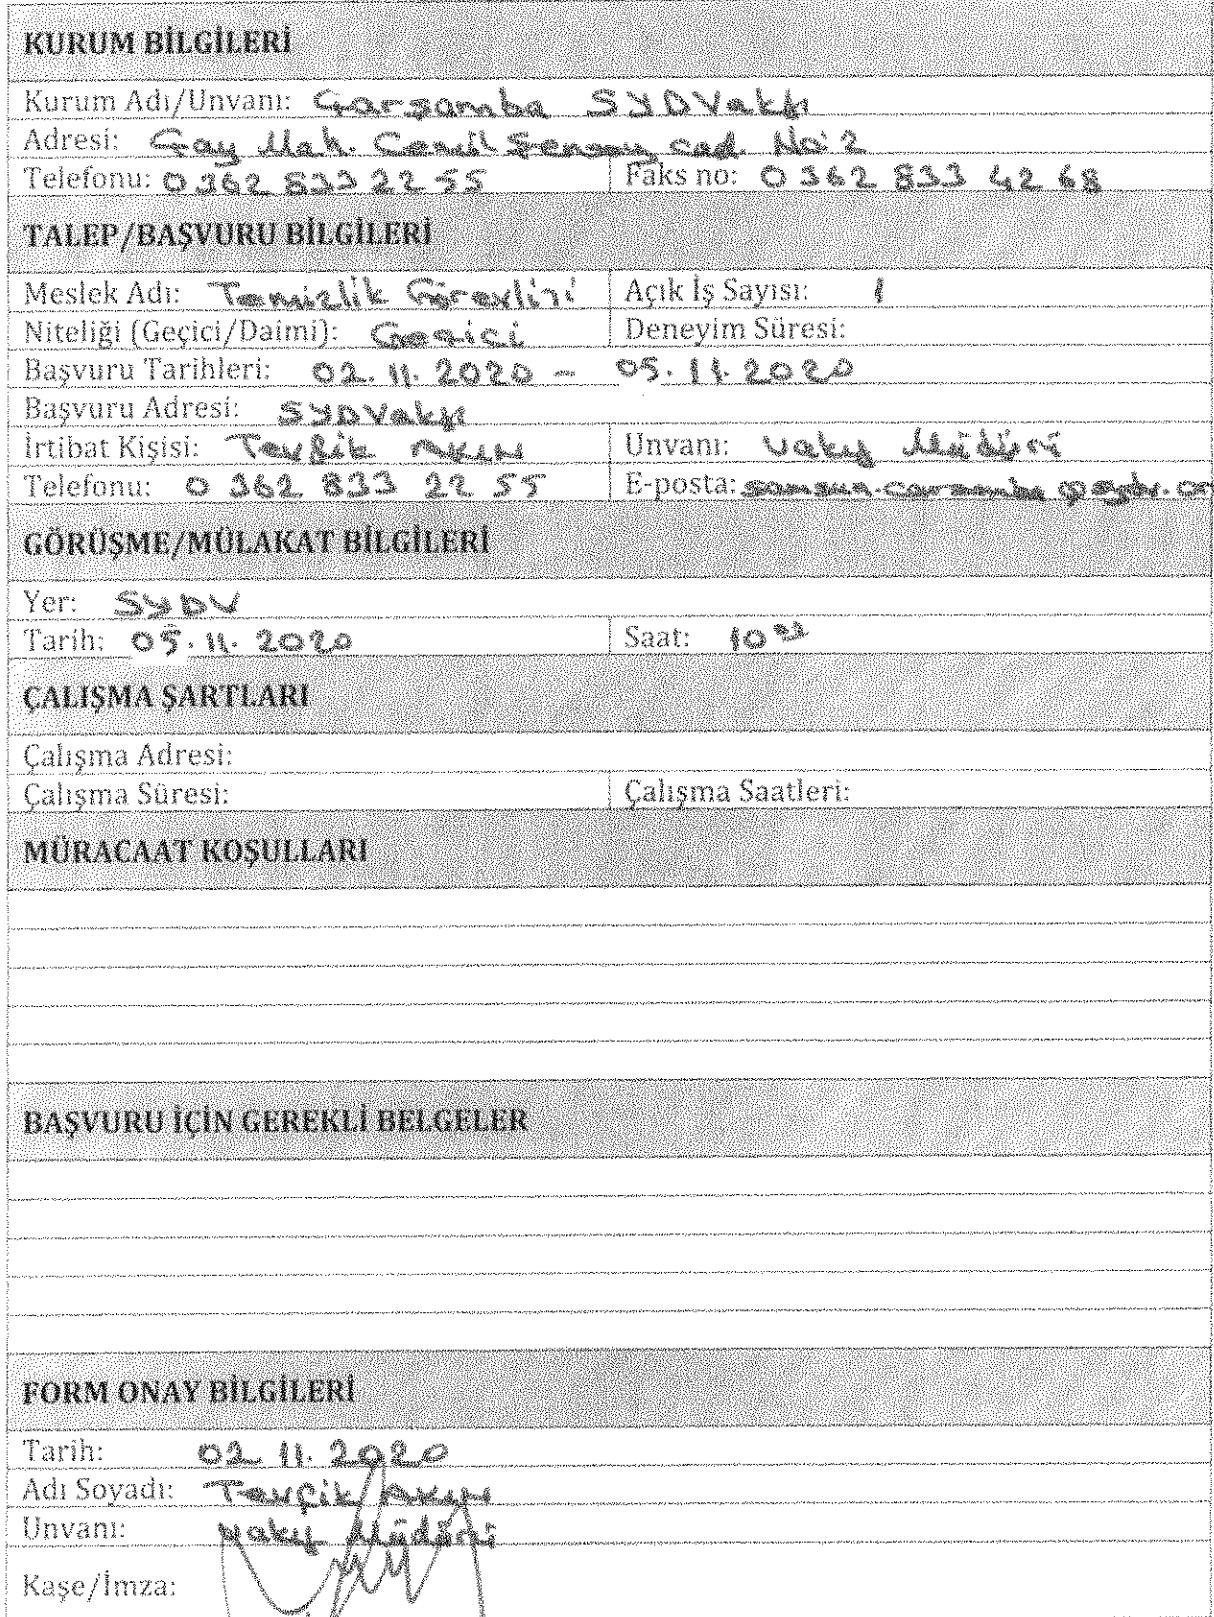 KURUM BİLGİLERİ
Kurum Adı/Unvanı: Çarşamba SYDVakfı
Adresi: Çay Mah. Cemil Şensoy cad. No:2
Telefonu: 0 362 833 22 55 Faks no: 0 362 833 42 68
TALEP/BAŞVURU BİLGİLERİ
Meslek Adı: Temizlik Görevlisi Açık İş Sayısı: 1
Niteliği (Geçici/Daimi): Geçici Deneyim Süresi:
Başvuru Tarihleri: 02.11.2020 - 05.11.2020
Başvuru Adresi: SYDVakfı
İrtibat Kişisi: Tevfik AKIN Unvanı: Vakıf Müdürü
Telefonu: 0 362 833 22 55 E-posta:
GÖRÜŞME/MÜLAKAT BİLGİLERİ
Yer: SYDV
Tarih: 05.11.2020 Saat: 10
ÇALIŞMA ŞARTLARI
Çalışma Adresi:
Çalışma Süresi: Çalışma Saatleri:
MÜRACAAT KOŞULLARI
BAŞVURU İÇİN GEREKLİ BELGELER
FORM ONAY BİLGİLERİ
Tarih: 02.11.2020
Adı Soyadı: Tevfik AKIN
Unvanı: Vakıf Müdürü
Kaşe/İmza: